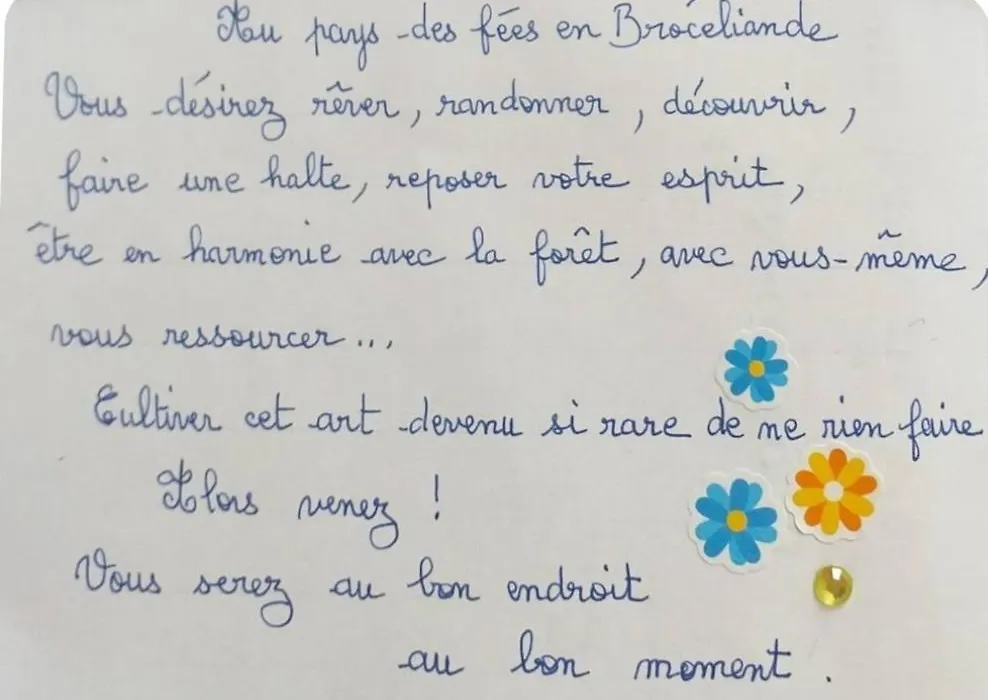 Au pays des fées en Brocéliande
Vous désirez rêver, randonner, découvrir,
faire une halte, reposer votre esprit,
être en harmonie avec la forêt, avec vous-même,
vous ressourcer...
Cultiver cet art devenu si rare de ne rien faire
Alors venez !
Vous serez au bon endroit
au bon moment.